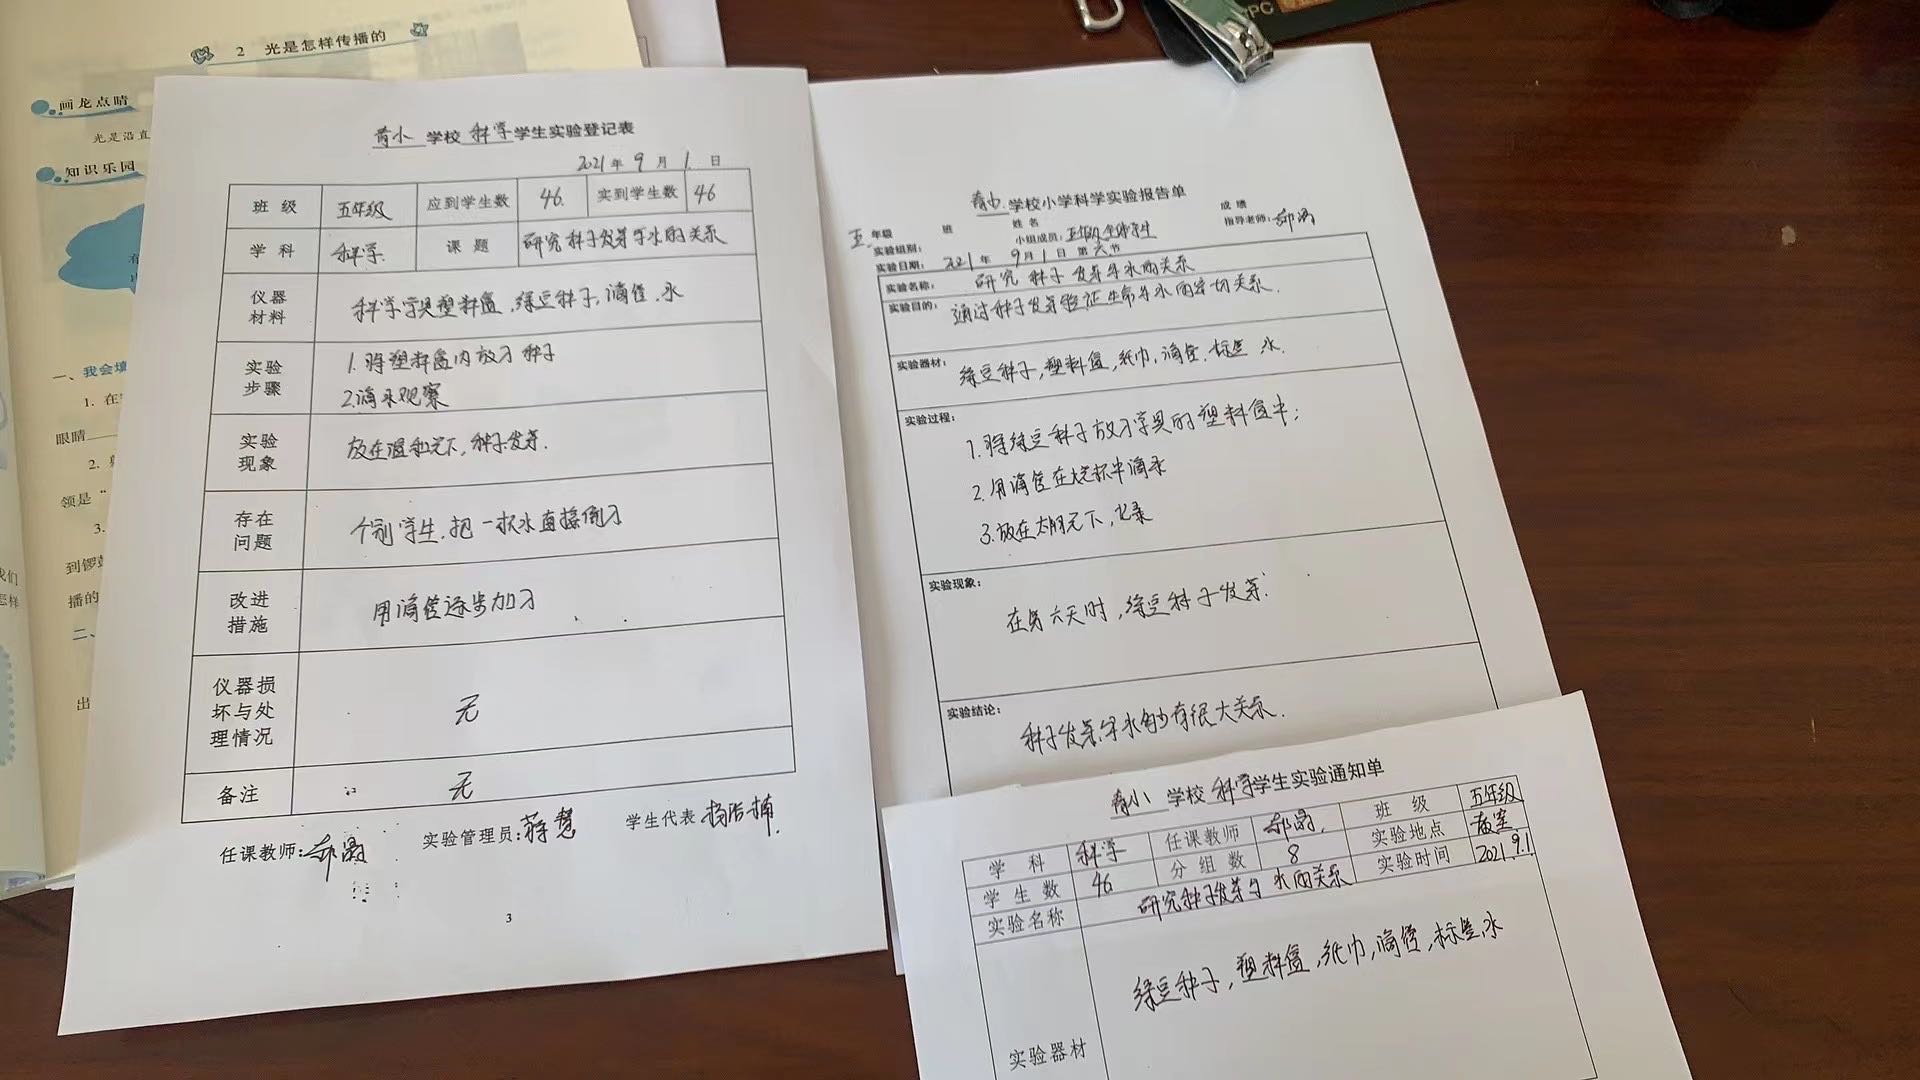 2 光是怎样传播的
画龙点睛
光是沿直
知识乐园
一、我会填
1. 在
眼睛
2.
领是“
3.
到锣
播的
二、
出
学校 科学 学生实验登记表
2021年 9月 1日
班级 五年级 应到学生数 46. 实到学生数 46
学科 科学 课题 研究种子发芽与水的关系
仪器材料 科学学具塑料盒,绿豆种子,滴管.水
实验步骤 1.将塑料盒内放入种子
2.滴水观察
实验现象 放在温和光下,种子发芽.
存在问题 个别学生,把一杯水直接倒入
改进措施 用滴管逐步加入
仪器损坏与处理情况 无
备注 无
任课教师: 实验管理员:蒋慧 学生代表
3
学校小学科学实验报告单
五年级 班 姓名 成绩
实验组别: 小组成员:五年级全体学生 指导老师:
实验日期: 2021年 9月1日 第六节
实验名称: 研究种子发芽与水的关系
实验目的: 通过种子发芽验证生命与水的密切关系.
实验器材: 绿豆种子,塑料盒,纸巾,滴管.标签 水.
实验过程: 1.将绿豆种子放入学具的塑料盒中;
2.用滴管在烧杯中滴水
3.放在太阳光下,记录
实验现象: 在第六天时,绿豆种子发芽.
实验结论: 种子发芽与水有很大关系.
学校 科学 学生实验通知单
学科 科学 任课教师 班级 五年级
学生数 46 分组数 8 实验地点 教室
实验名称 研究种子发芽与水的关系 实验时间 2021.9.1
实验器材 绿豆种子,塑料盒,纸巾,滴管,标签,水